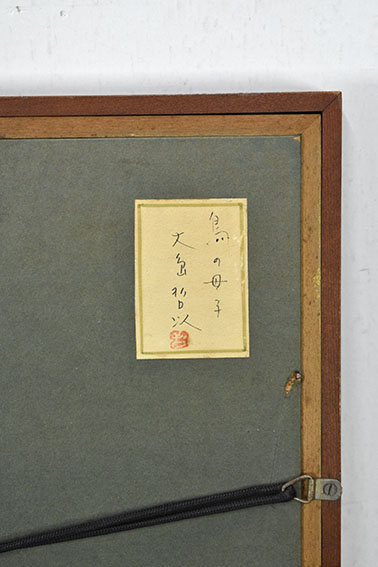 鳥の母子
大島哲以